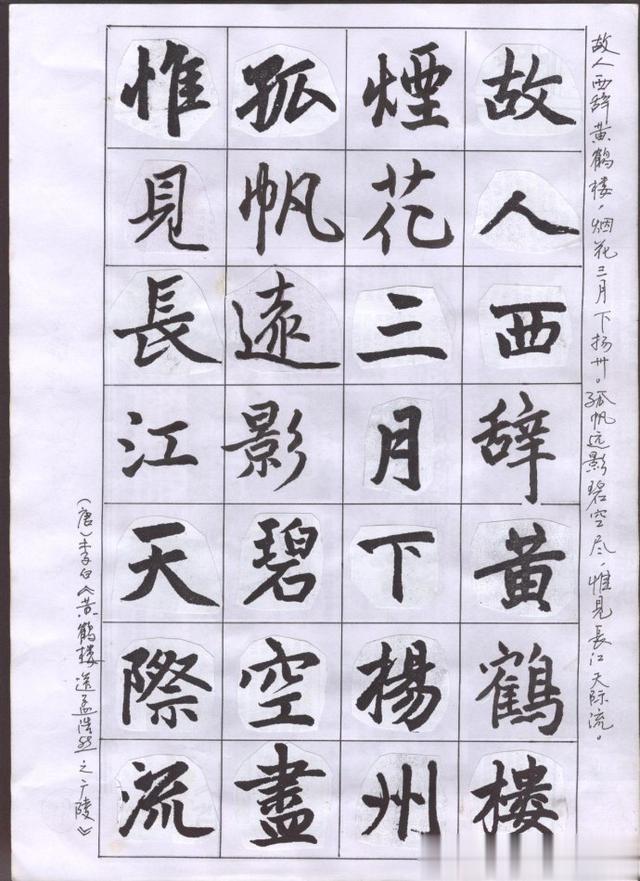 故人西辞黄鹤楼，烟花三月下扬州。孤帆远影碧空尽，惟見長江天际流。
故人西辞黄鶴樓
煙花三月下楊州
孤帆遠影碧空盡
惟見長江天際流
（唐）李白《黄鹤楼送孟浩然之广陵》